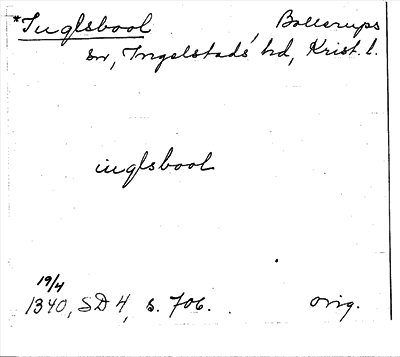 *Inglsbool, Bollerups
sn, Ingelstads hd, Krist. l.
inglsbool
19/4
1340, SD 4, s. 706. orig.